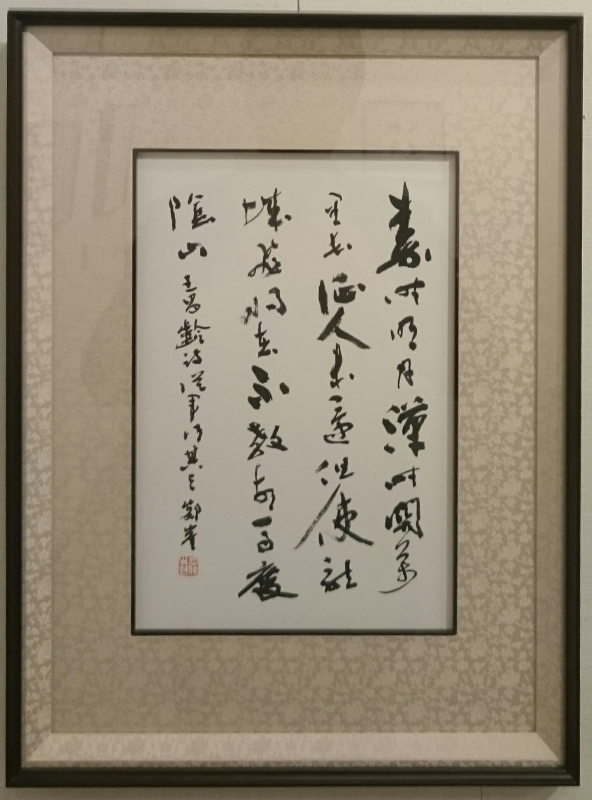 秦时明月漢时關萬
里长征人未還但使龍
城飛将在不教胡马度
陰山 王昌齡诗從軍行其 鄭